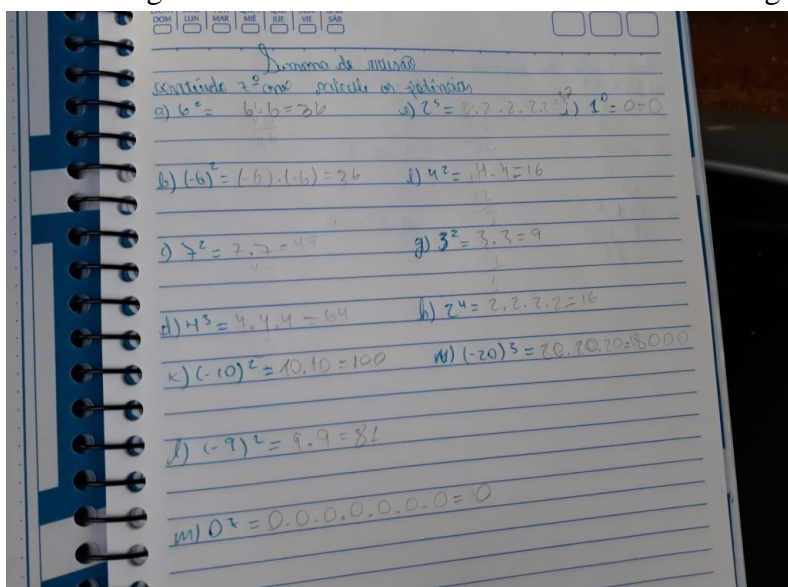 DOM LUN MAR MIÉ JUE VIE SÁB
Semana de revisão
conteúdo 7º ano calcule as potências
a) 6² = 6.6 = 36 e) 2⁵ = 2.2.2.2.2=32 i) 1⁰ = 0=0
b) (-6)² = (-6).(-6) = 36 f) 4² = 4.4=16
c) 7² = 7.7=49 g) 3² = 3.3=9
d) 4³ = 4.4.4 = 64 h) 2⁴ = 2.2.2.2=16
k) (-10)² = 10.10=100 N) (-20)³ = 20.20.20=8000
l) (-9)² = 9.9=81
m) 0⁷ = 0.0.0.0.0.0.0=0